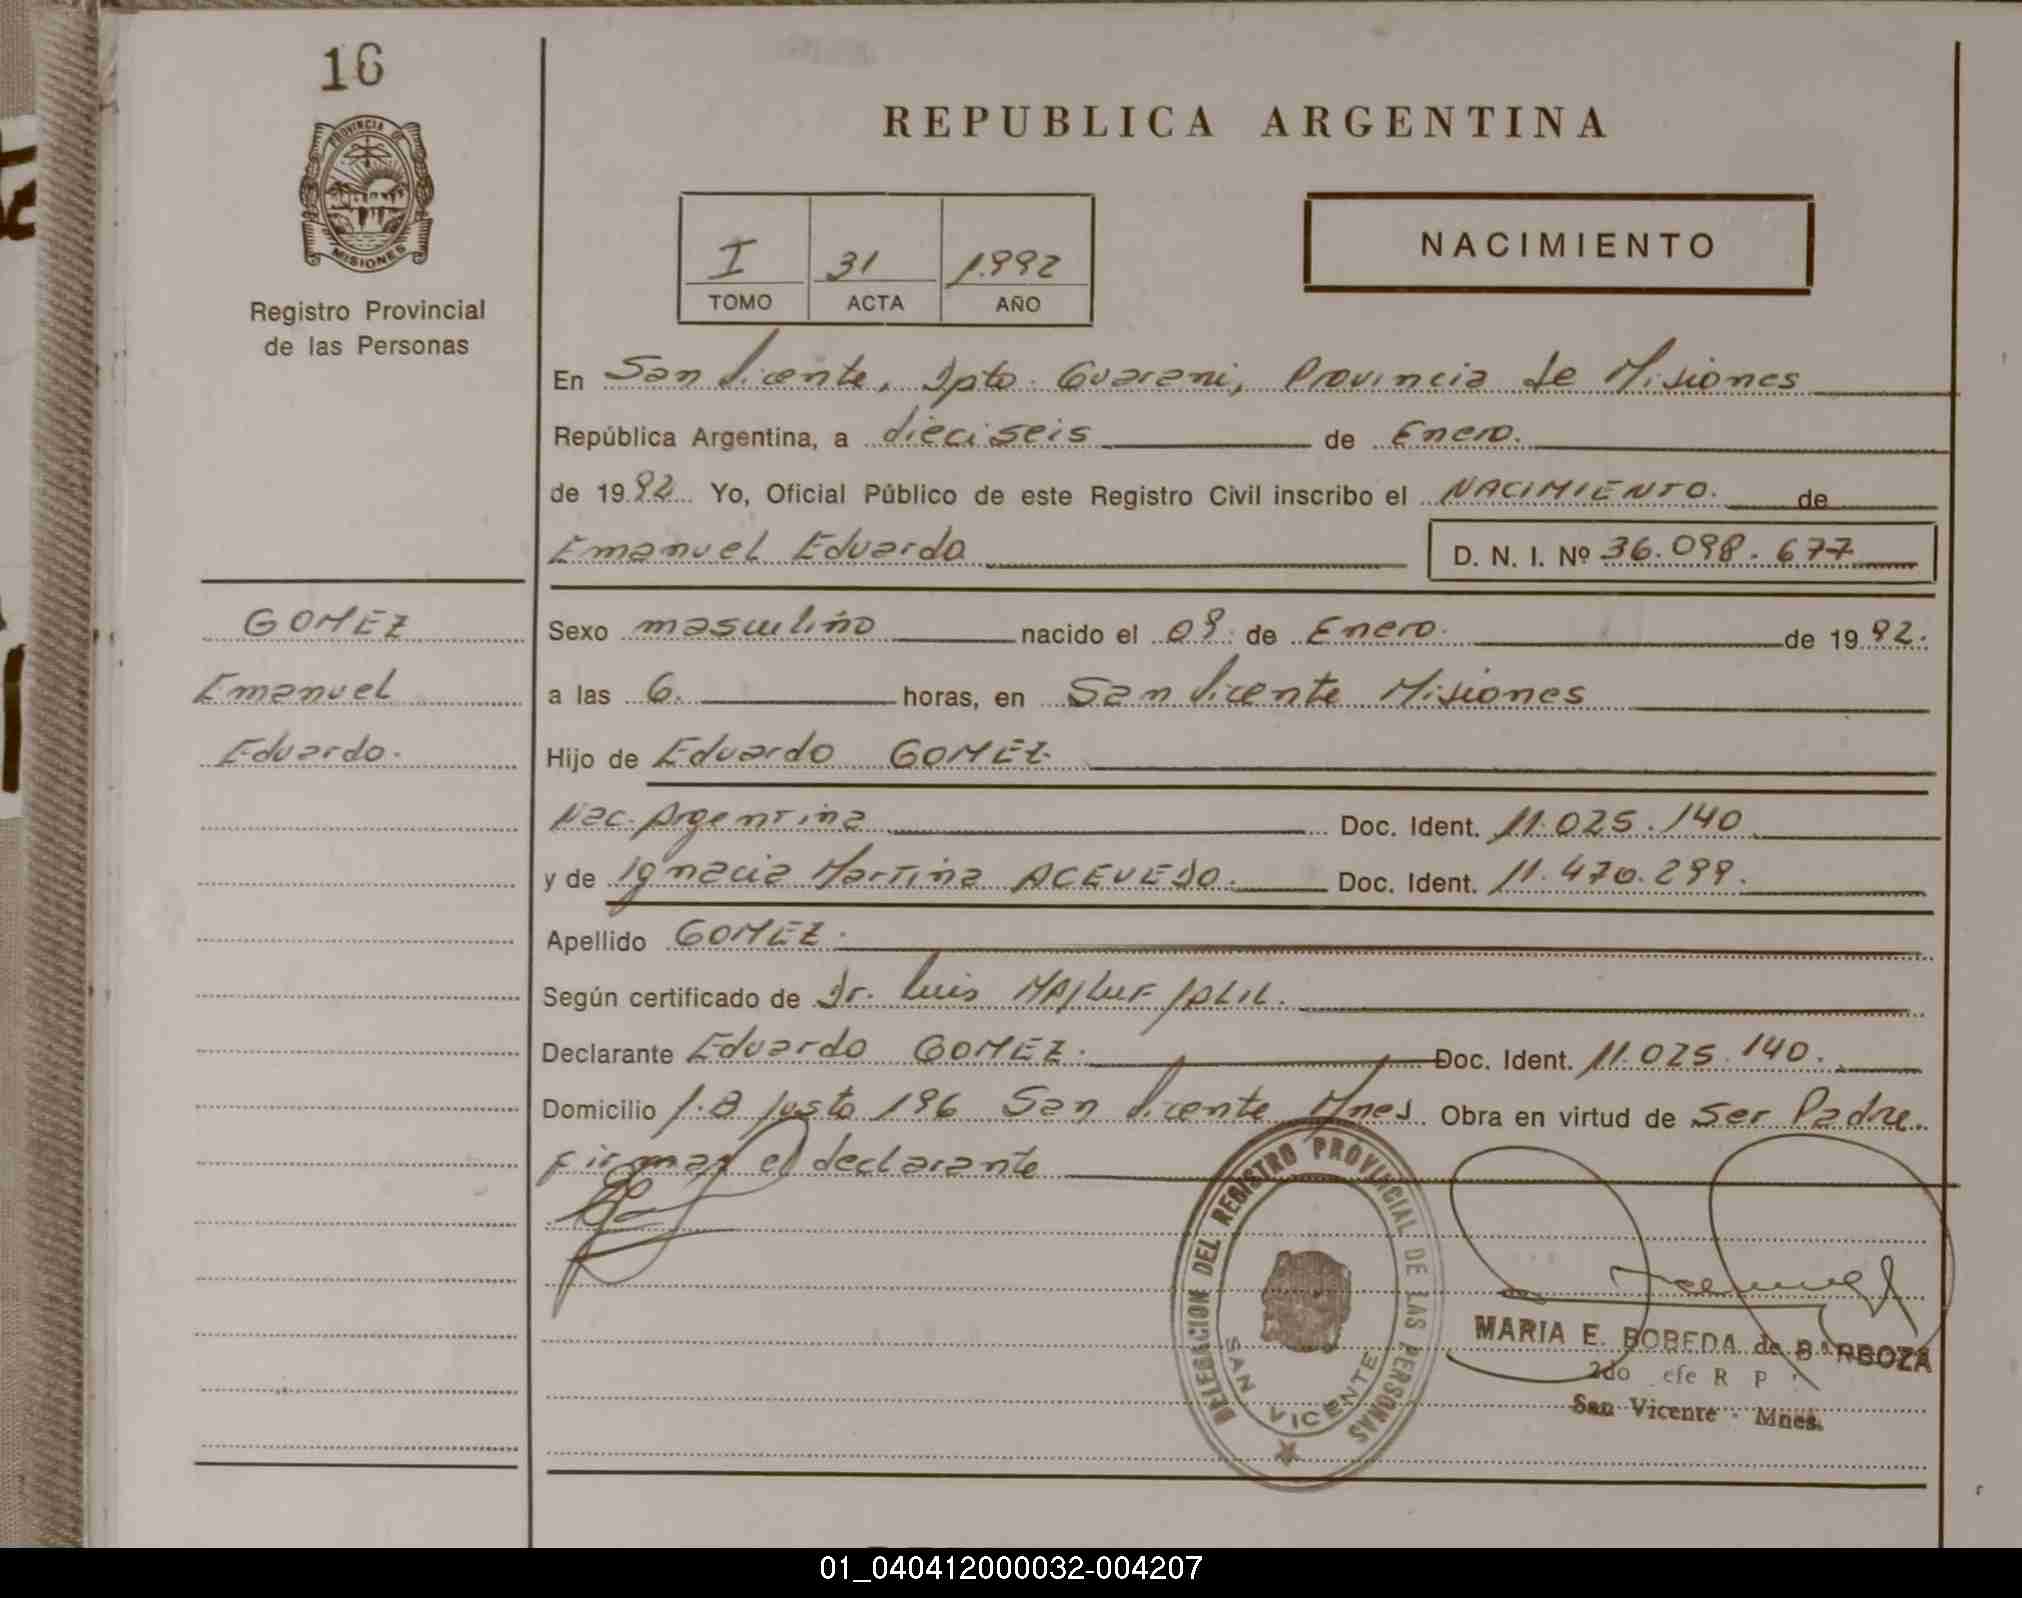 16
PROVINCIA DE
MISIONES
Registro Provincial
de las Personas
REPUBLICA ARGENTINA
I 31 1992
TOMO ACTA AÑO
NACIMIENTO
En San Vicente, Dpto. Guarani, Provincia de Misiones
República Argentina, a dieciseis de Enero.
de 1992 Yo, Oficial Público de este Registro Civil inscribo el NACIMIENTO. de
Emanuel Eduardo D. N. I. Nº 36.098.677
GOMEZ
Emanuel
Eduardo.
Sexo masculino nacido el 09 de Enero. de 1992.
a las 6. horas, en San Vicente Misiones
Hijo de Eduardo GOMEZ
Nac. Argentina Doc. Ident. 11.025.140
y de Ignacia Martina ACEVEDO. Doc. Ident. 11.470.299.
Apellido GOMEZ.
Según certificado de Dr. Luis JALIL.
Declarante Eduardo GOMEZ. Doc. Ident. 11.025.140.
Domicilio 196 San Vicente Mnes. Obra en virtud de Ser Padre.
el declarante
DELEGACION DEL REGISTRO PROVINCIAL DE LAS PERSONAS
SAN VICENTE
MARIA E. BOBEDA de BARBOZA
2do efe R P
San Vicente - Mnes.
01_040412000032-004207